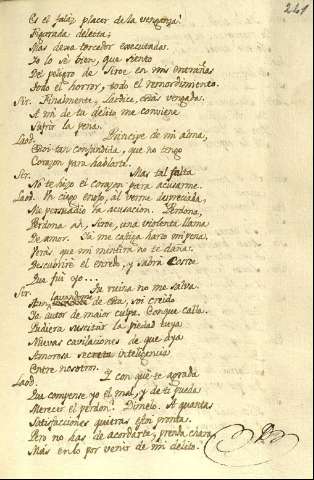 241
Es el falaz placer de la venganza!
Figurada delecta;
Mas dexa torcedor executadas.
Ya lo se bien, que siento
Del peligro de Siroe en mis entrañas
Todo el horror, todo el remordimiento.
Sir. Finalmente, Laodice, estàs vengada.
A mi de tu delito me conviene
Sufrir la pena.
Laod. Principe de mi alma,
Estoi tan confundida, que no tengo
Corazon para hablarte.
Sir. Mas tal falta
No te hizo el corazon para acusarme.
Laod. Un ciego enojo, al verme despreciada,
Me persuadió la acusacion. Perdona,
Perdona ah, Siroe, una violenta llama
De amor. Ya me castiga harto mi pena.
Verás que mi mentira no te daña.
Descubriré el enredo, y sabrá Cosroe
Que fui yo...
Sir. Su ruina no me salva.
lavandome
de esta, soi creido
De autor de maior culpa. Conque calla.
Pudiera suscitar la piedad tuya
Nuevas cavilaciones de que aya
Amorosa secreta inteligencia
Entre nosotros.
Laod. Y con què te agrada
Que compense yo el mal, y de ti pueda
Merecer el perdon? Dimelo. A quantas
Satisfacciones quieras estoi pronta.
Pero no has de acordarte, prenda chara,
Mas en lo por venir de mi delito.